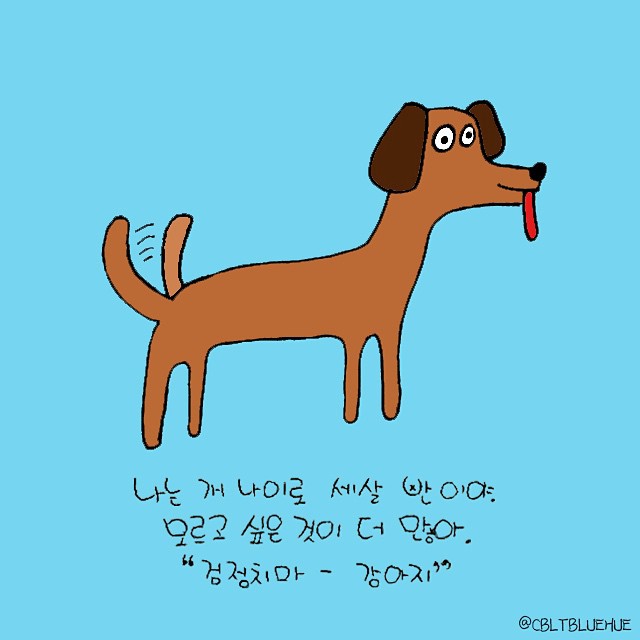 나는 개 나이로 세살 반이야.
모르고 싶은 것이 더 많아.
“검정치마 - 강아지”
@CBLTBLUEHUE